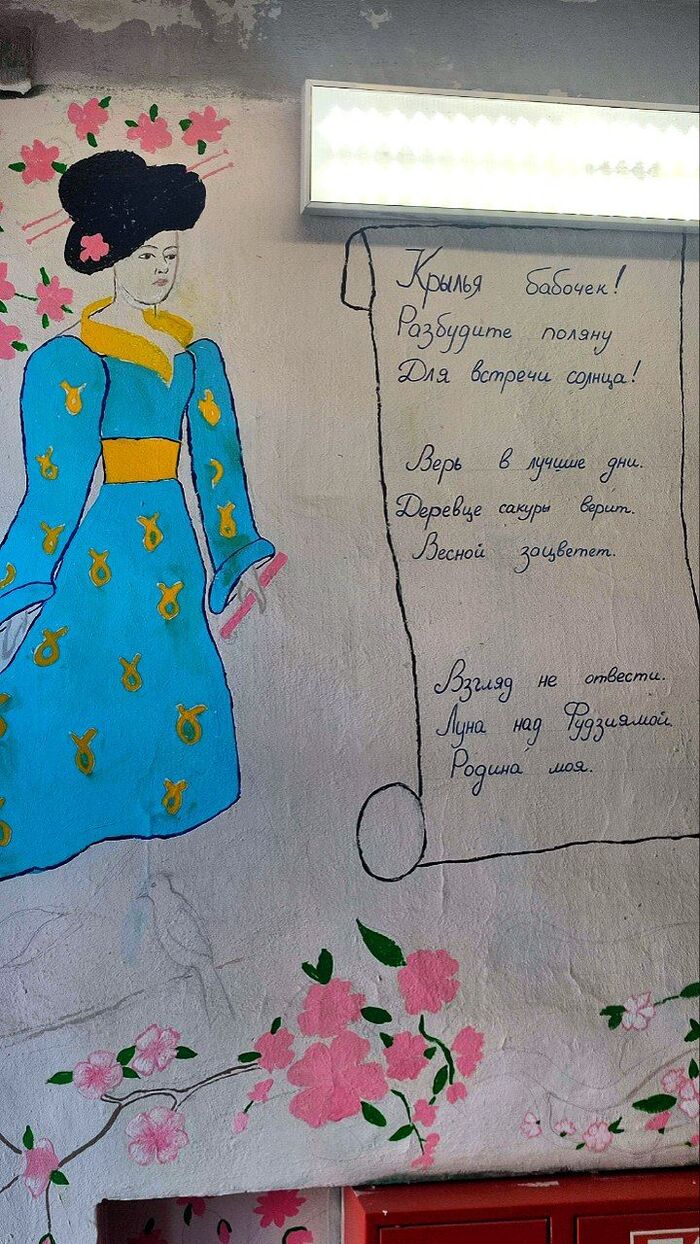 Крылья бабочек!
Разбудите поляну
Для встречи солнца!
Верь в лучшие дни.
Деревце сакуры верит.
Весной зацветет.
Взгляд не отвести.
Луна над Фудзиямой.
Родина моя.